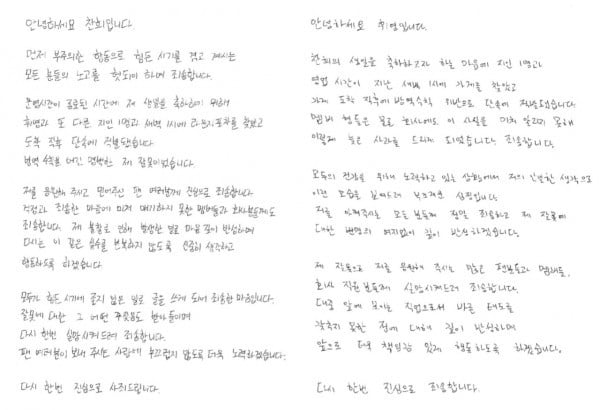 안녕하세요 찬희입니다.
먼저 부주의한 행동으로 힘든 시기를 겪고 계시는
모든 분들의 노고를 헛되이 하여 죄송합니다.
운영시간이 종료된 시간에 제 생일을 축하하기 위해
휘영과 또 다른 지인 1명과 새벽 1시에 라운지포차를 찾았고
도착 직후 단속에 적발됐습니다
방역 수칙을 어긴 명백한 제 잘못이었습니다.
저를 응원해 주시고 믿어주신 팬 여러분께 진심으로 죄송합니다
걱정과 죄송한 마음에 미처 얘기하지 못한 멤버들과 회사분들께도
죄송합니다. 제 불찰로 인해 발생한 일로 마음 깊이 반성하며
다시는 이 같은 실수를 반복하지 않도록 신중히 생각하고
행동하도록 하겠습니다.
모두가 힘든 시기에 좋지 않은 일로 글을 쓰게 되어 죄송한 마음입니다.
잘못에 대한 그 어떤 꾸짖음도 받아들이며
다시 한번 실망시켜드려 죄송합니다.
팬 여러분이 보내 주시는 사랑에 부끄럽지 않도록 더욱 노력하겠습니다.
다시 한번 진심으로 사죄드립니다.
안녕하세요 휘영입니다.
찬희의 생일을 축하하고자 하는 마음에 지인 1명과
영업 시간이 지난 새벽 1시에 가게를 찾았고
가게 도착 직후에 방역수칙 위반으로 단속에 적발됐습니다
멤버 형들은 물론 회사에도 이 사실을 미처 알리지 못해
이렇게 늦은 사과를 드리게 되었습니다. 죄송합니다.
모두의 건강을 위해 노력하고 있는 상황에서 저의 안일한 생각으로
이런 모습을 보여드려 부끄러운 심정입니다.
저를 아껴주시는 모든 분들께 정말 죄송하고 제 잘못에
대한 변명의 여지없이 깊이 반성하겠습니다.
제 잘못으로 저를 응원해 주시는 많은 팬분들과 멤버들,
회사 직원 분들께 실망시켜드려 죄송합니다.
대중 앞에 보이는 직업으로써 바른 태도를
갖추지 못한 점에 대해 깊이 반성하며
앞으로 더욱 책임감 있게 행동하도록 하겠습니다.
다시 한번 진심으로 죄송합니다.